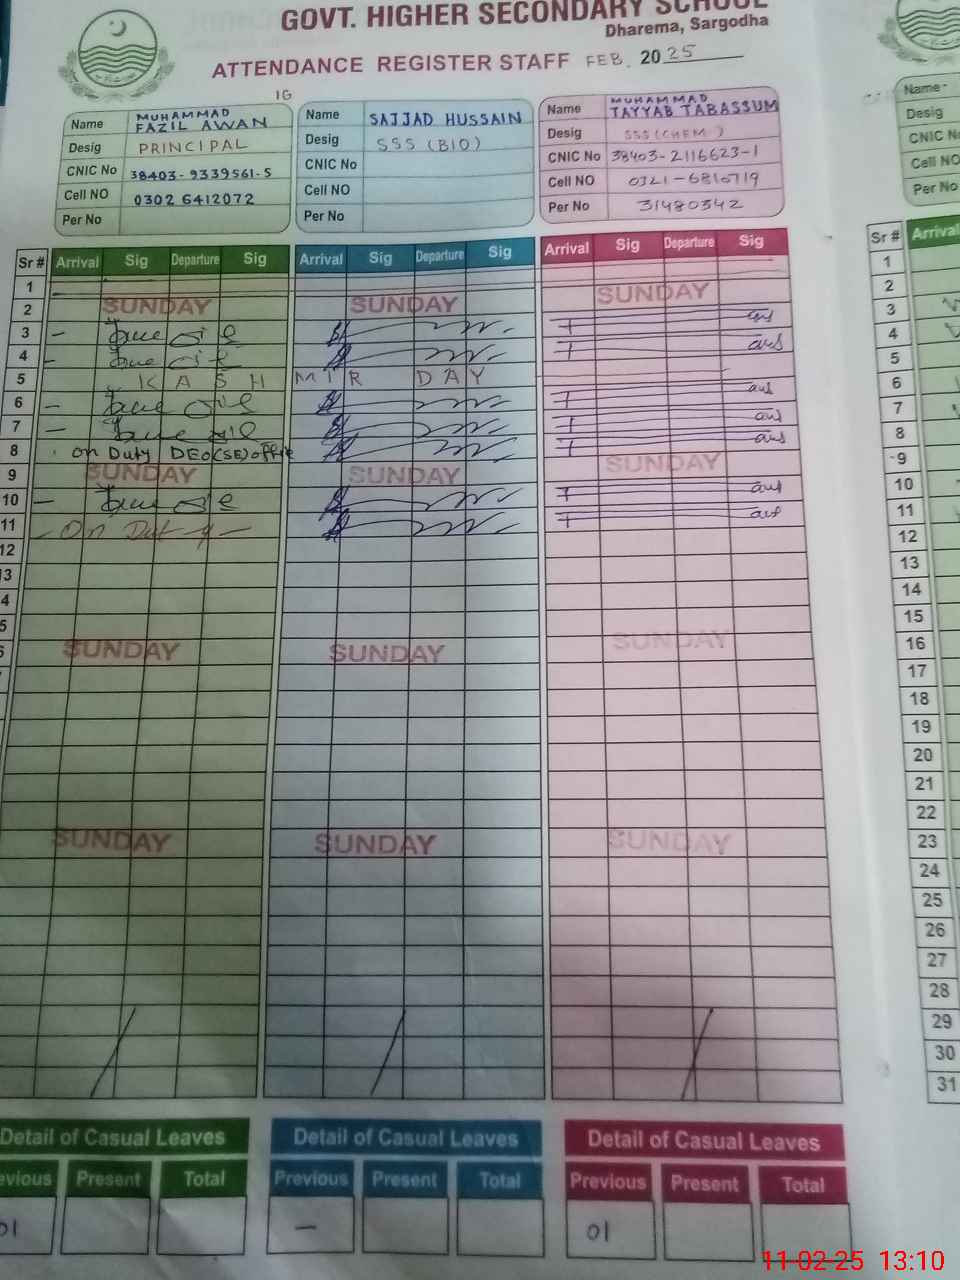 GOVT. HIGHER SECONDARY SCHOOL
Dharema, Sargodha
ATTENDANCE REGISTER STAFF FEB. 2025
1G
Name MUHAMMAD FAZIL AWAN
Desig PRINCIPAL
CNIC No 38403-9339561-5
Cell NO 0302 6412072
Per No
Name SAJJAD HUSSAIN
Desig SSS (BIO)
CNIC No
Cell NO
Per No
Name MUHAMMAD TAYYAB TABASSUM
Desig SSS (CHEM)
CNIC No 38403-2116623-1
Cell NO 0321-6810719
Per No 31480342
Name
Desig
CNIC No
Cell NO
Per No
Sr # Arrival Sig Departure Sig Arrival Sig Departure Sig Arrival Sig Departure Sig Sr # Arrival
1 1
2 SUNDAY SUNDAY SUNDAY 2
3 3
4 4
5 KASHMIR DAY 5
6 6
7 7
8 on Duty DEO(SE) office 8
9 SUNDAY SUNDAY SUNDAY 9
10 10
11 On Duty 11
12 12
13 13
4 14
5 15
6 SUNDAY SUNDAY SUNDAY 16
17
18
19
20
21
22
SUNDAY SUNDAY SUNDAY 23
24
25
26
27
28
29
30
31
Detail of Casual Leaves Detail of Casual Leaves Detail of Casual Leaves
Previous Present Total Previous Present Total Previous Present Total
01 – 01
11-02-25 13:10